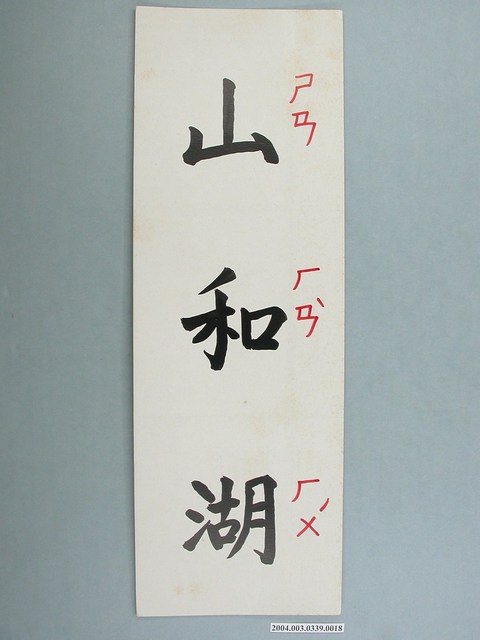 山 ㄕㄢ
和 ㄏㄢˋ
湖 ㄏㄨˊ
2004.003.0339.0018